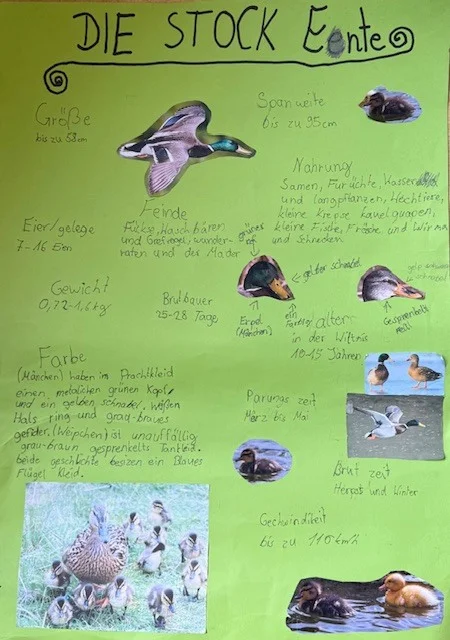 DIE STOCK Eente
Größe
bis zu 58cm
Spanweite
bis zu 95cm
Nahrung
Samen, Furüchte, Wasser
und langpflanzen, Hechtiere,
kleine Krepse kavelguapen,
kleine Fische, Frösche und Würma
und Schnecken
Feinde
Fückse, Waschbären
und Greifvogel, wander-
raten und der Marder
Eier/gelege
7-16 Eier
grüner
gelber schnabel
Erpel
(Mänchen)
Gesprenkelte
Gewicht
0,72-1,6kg
Brutbauer
25-28 Tage
alter
in der Wiltnis
10-15 Jahren
Farbe
(Mänchen) haben im Prachtkleid
einen, metalichen grünen Kopf,
und ein gelben schnabel, weißen
Hals ring und grau-braues
gefider. (Weipchen) ist unauffällig
grau-braun gesprenkelts Tarnkleid.
beide geschlechte besizen ein Blaues
Flügel Kleid.
Parungs zeit
März bis Mai
Brut zeit
Herpst und Winter
Geckwindikeit
bis zu 110 km/h